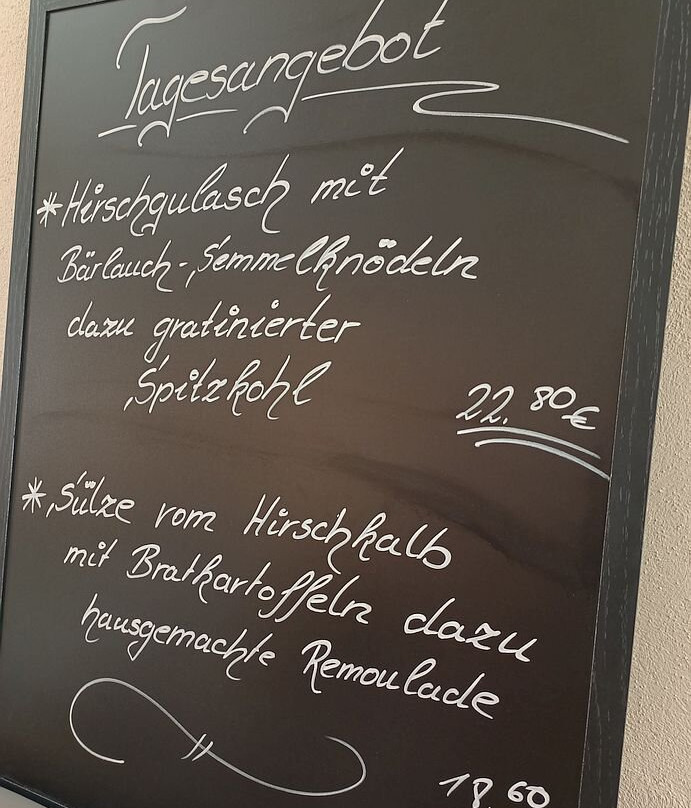 Tagesangebot
*Hirschgulasch mit
Bärlauch-Semmelknödeln
dazu gratinierter
Spitzkohl
22.80€
*Sülze vom Hirschkalb
mit Bratkartoffeln dazu
hausgemachte Remoulade
18 60